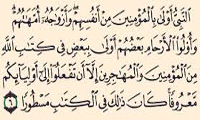 ٱلنَّبِىُّ أَوْلَىٰ بِٱلْمُؤْمِنِينَ مِنْ أَنفُسِهِمْ وَأَزْوَٰجُهُۥٓ أُمَّهَٰتُهُمْ
وَأُو۟لُوا۟ ٱلْأَرْحَامِ بَعْضُهُمْ أَوْلَىٰ بِبَعْضٍ فِى كِتَٰبِ ٱللَّهِ
مِنَ ٱلْمُؤْمِنِينَ وَٱلْمُهَٰجِرِينَ إِلَّآ أَن تَفْعَلُوٓا۟ إِلَىٰٓ أَوْلِيَآئِكُم
مَّعْرُوفًا كَانَ ذَٰلِكَ فِى ٱلْكِتَٰبِ مَسْطُورًا ٦